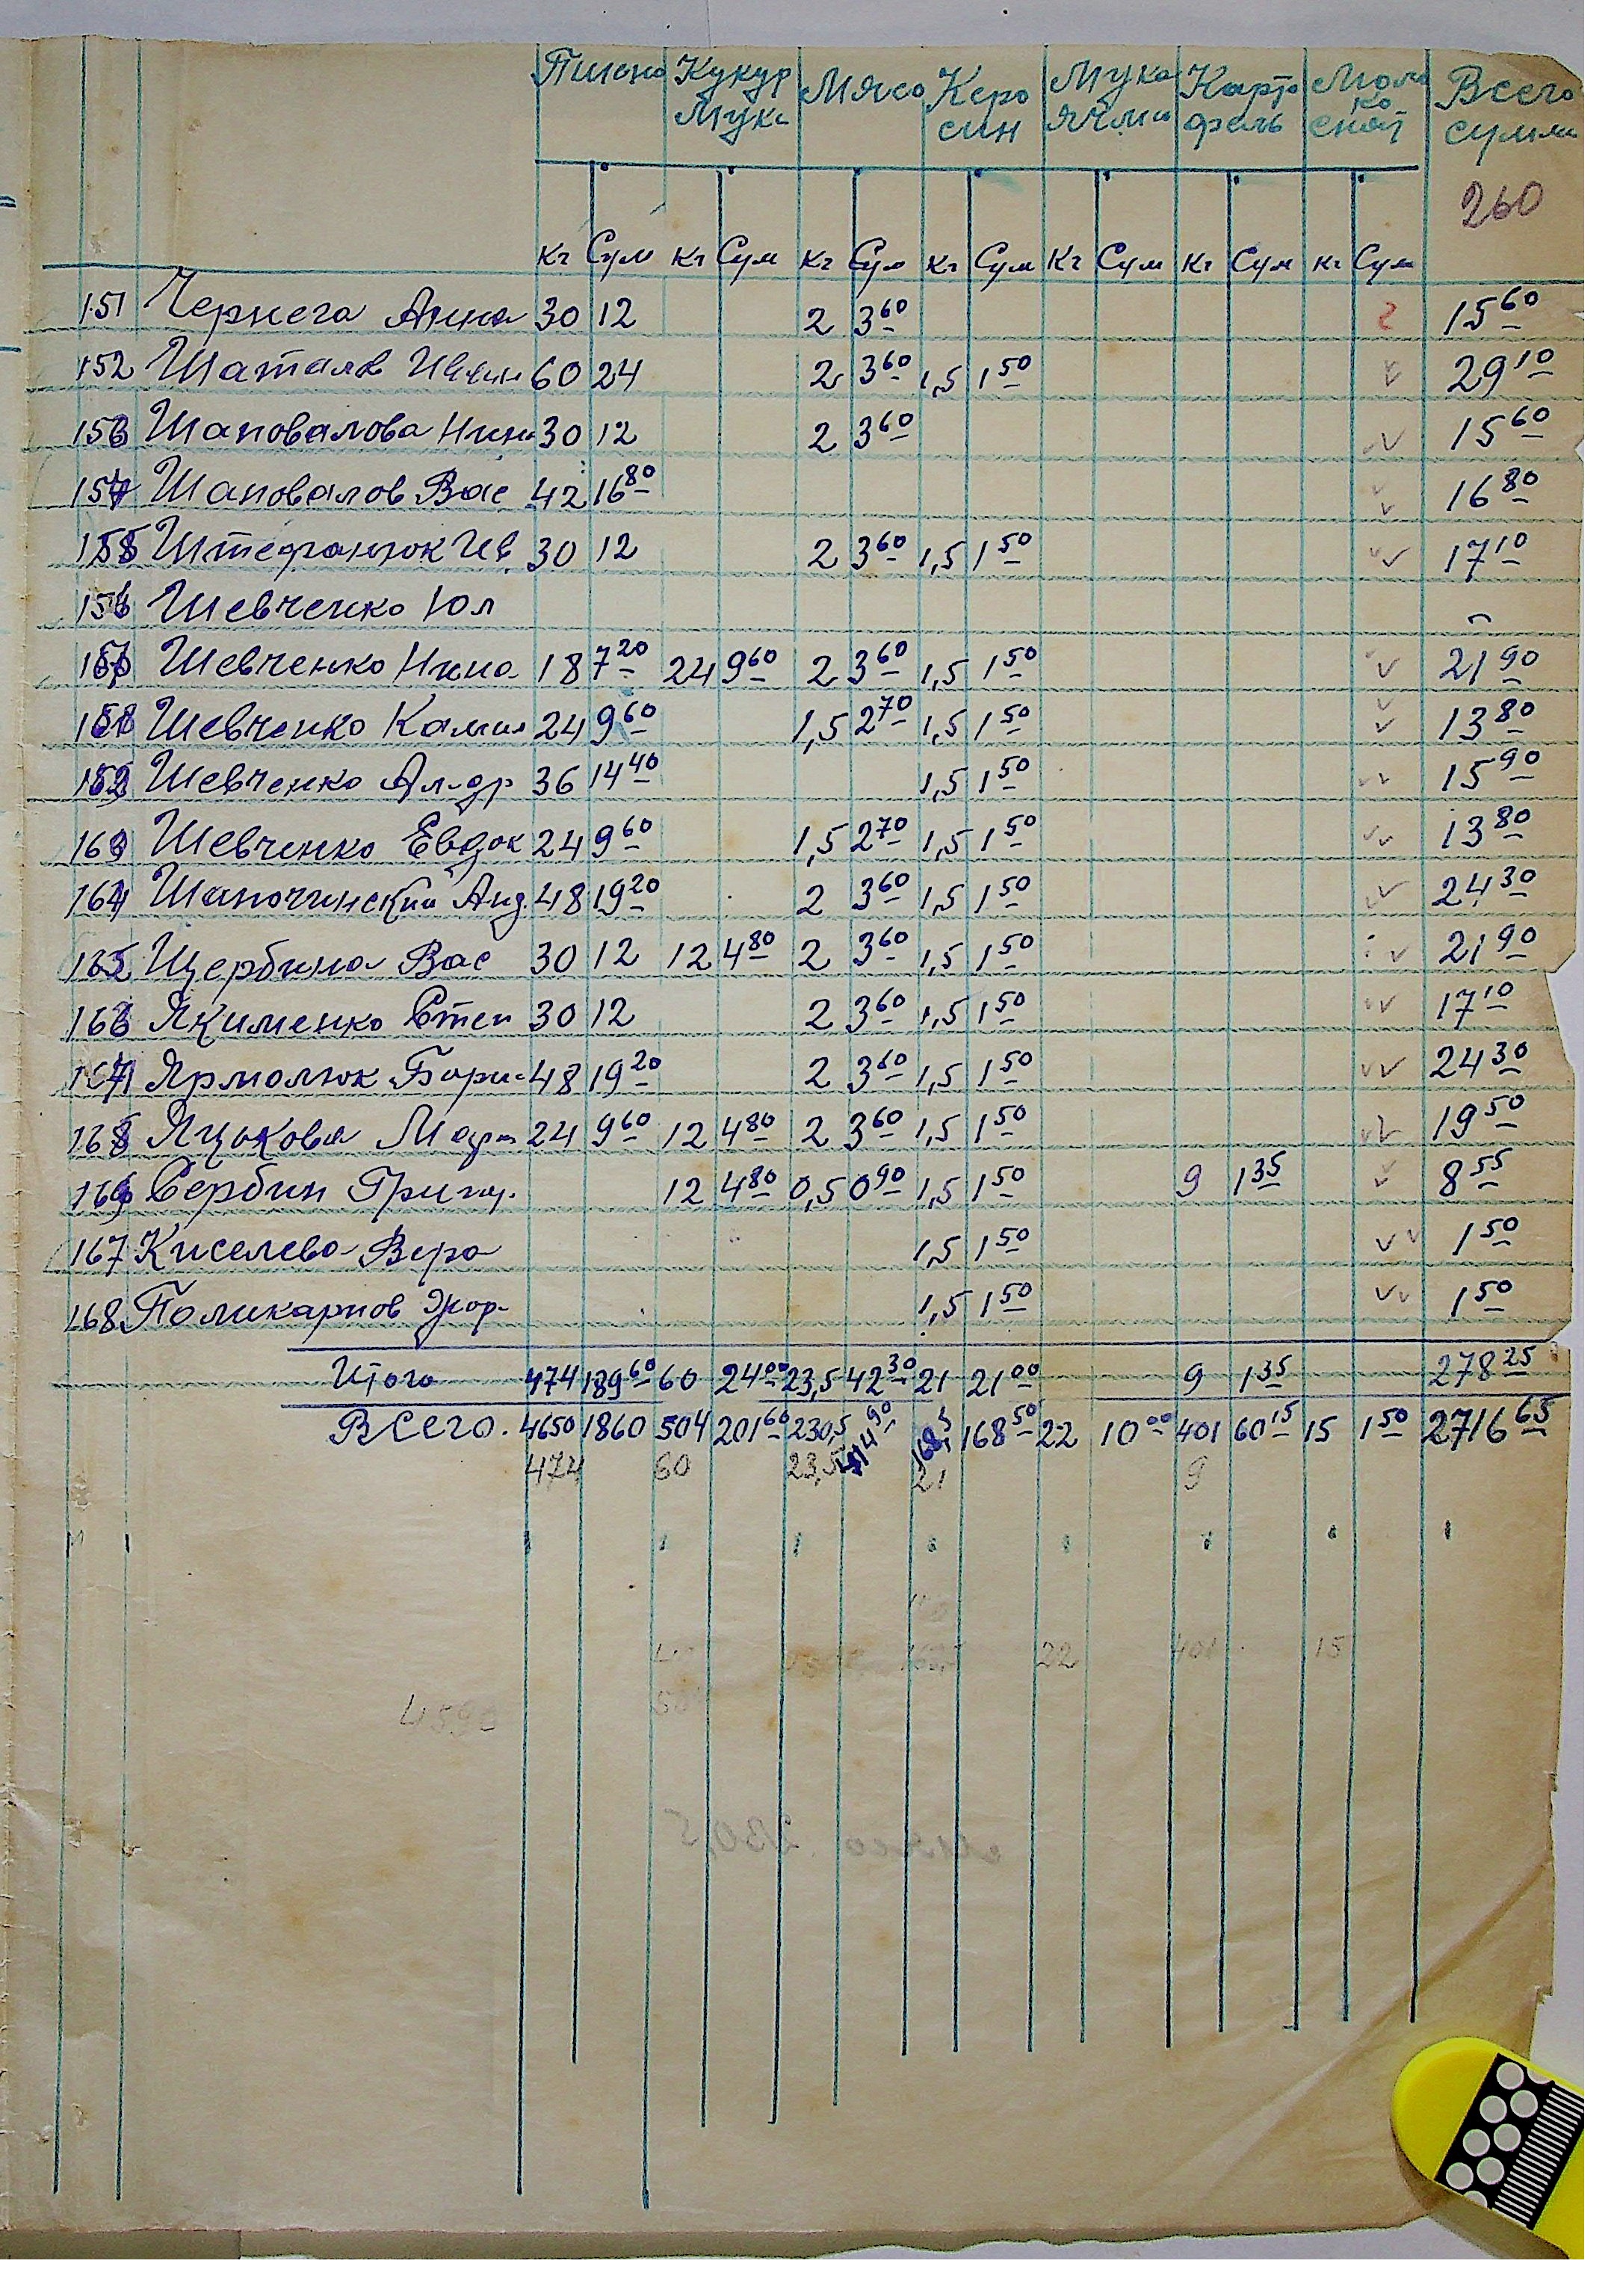 Пшено Кукур Мясо Керо Мука Карто Моло Всего
Мука син ячми фель ко сумма
снят
260
кг Сум кг Сум кг Сум кг Сум кг Сум кг Сум кг Сум
151 Чернега Анна 30 12 2 3 60 15 60
152 Шаталов Иван 60 24 2 3 60 1,5 1 50 29 10
153 Шаповалова Нин 30 12 2 3 60 15 60
154 Шаповалов Вас 42 16 80 16 80
155 Штефанюк Ив 30 12 2 3 60 1,5 1 50 17 10
156 Шевченко Юл –
157 Шевченко Нина 18 7 20 24 9 60 2 3 60 1,5 1 50 21 90
158 Шевченко Камил 24 9 60 1,5 2 70 1,5 1 50 13 80
Шевченко Ал-др 36 14 40 1,5 1 50 15 90
Шевченко Евдок 24 9 60 1,5 2 70 1,5 1 50 13 80
Шапочинский Анд. 48 19 20 2 3 60 1,5 1 50 24 30
Щербина Вас 30 12 12 4 80 2 3 60 1,5 1 50 21 90
Якименко Степ 30 12 2 3 60 1,5 1 50 17 10
Ярмолюк Бори 48 19 20 2 3 60 1,5 1 50 24 30
Яцькова Мар 24 9 60 12 4 80 2 3 60 1,5 1 50 19 50
Сербин Григор. 12 4 80 0,5 0 90 1,5 1 50 9 1 35 8 55
167 Киселева Вера 1,5 1 50 1 50
168 Поликарпов 1,5 1 50 1 50
Итого 474 189 60 60 24 00 23,5 42 30 21 21 00 9 1 35 278 25
Всего. 4650 1860 504 201 60 230,5 414 90 168,5 168 50 22 10 00 401 60 15 15 1 50 2716 65
474 60 23,5 21 9
22 401 15
4590
мясо 230,5